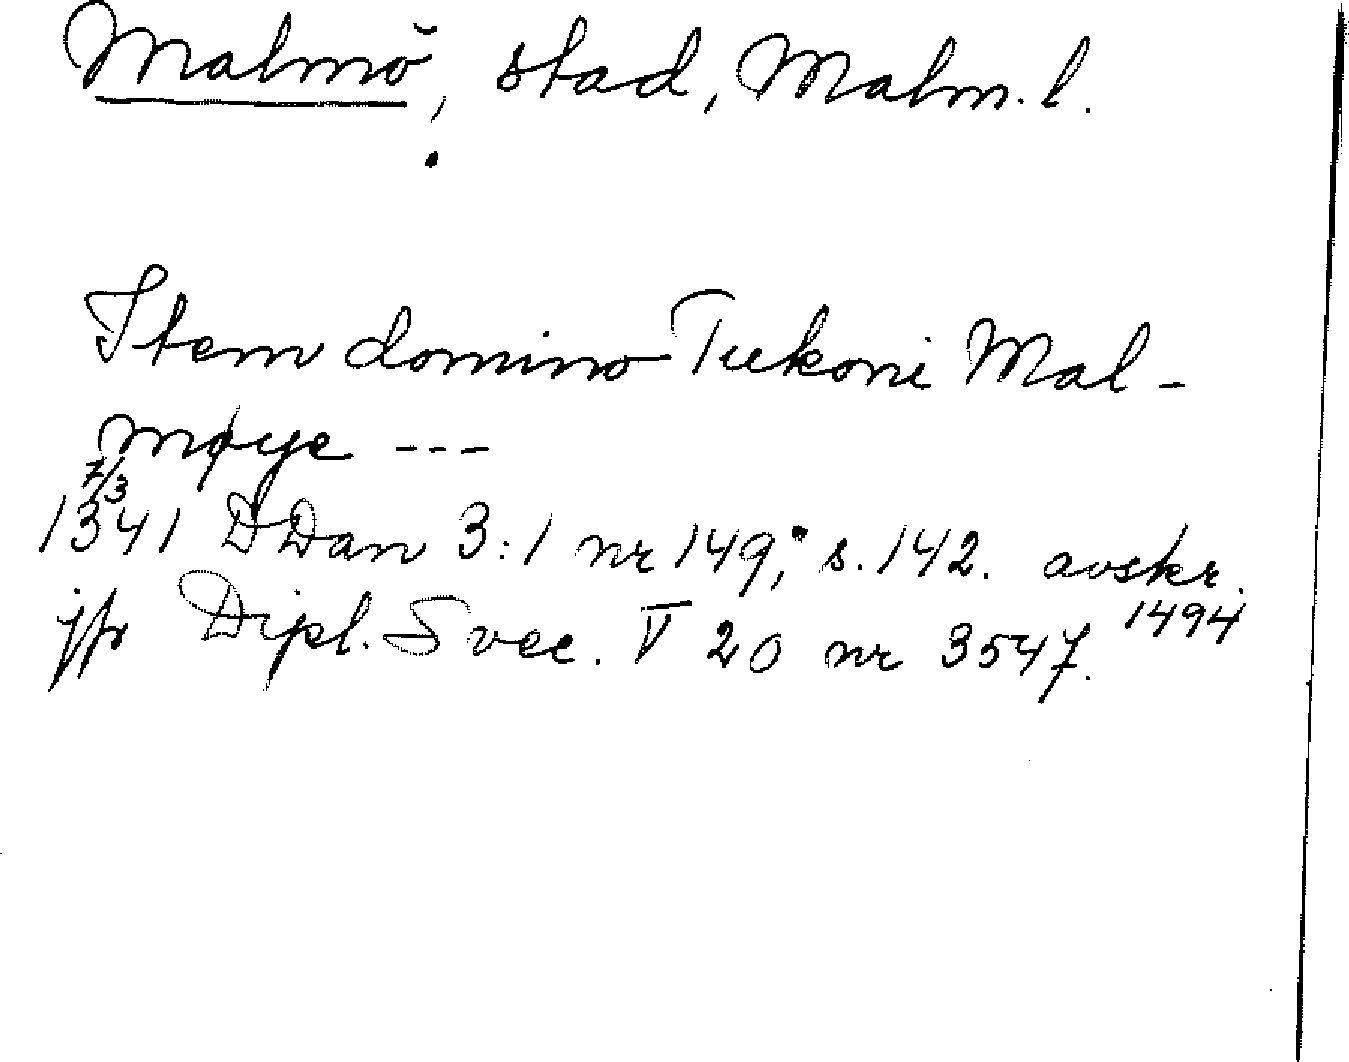 Malmö, stad, Malm. l.
Item domino Tukoni Mal-
møye ---
7/3
1341 DDan 3:1 nr 149, s. 142. avskr.
1494
jfr Dipl. Svec. V 20 nr 3547.